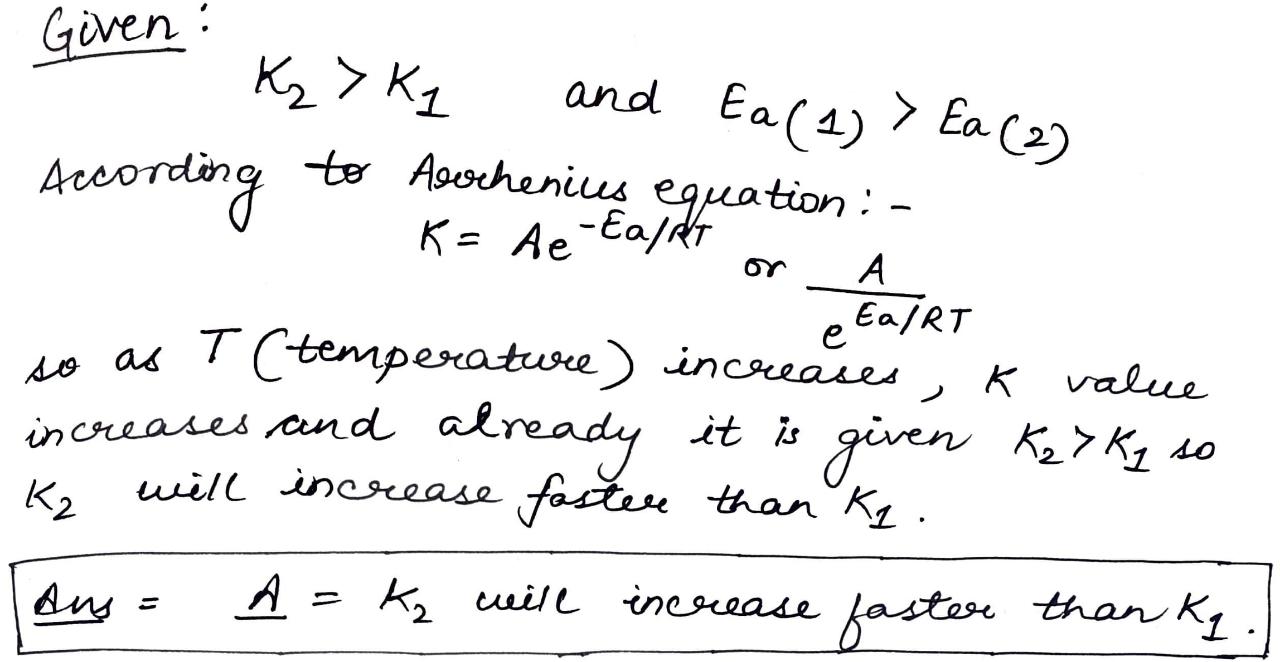 Given :
K₂ > K₁ and Ea(1) > Ea(2)
According to Arrhenius equation : -
K = Ae^-Ea/RT or A / e^Ea/RT
so as T (temperature) increases, K value
increases and already it is given K₂ > K₁ so
K₂ will increase faster than K₁.
Ans = A = K₂ will increase faster than K₁.